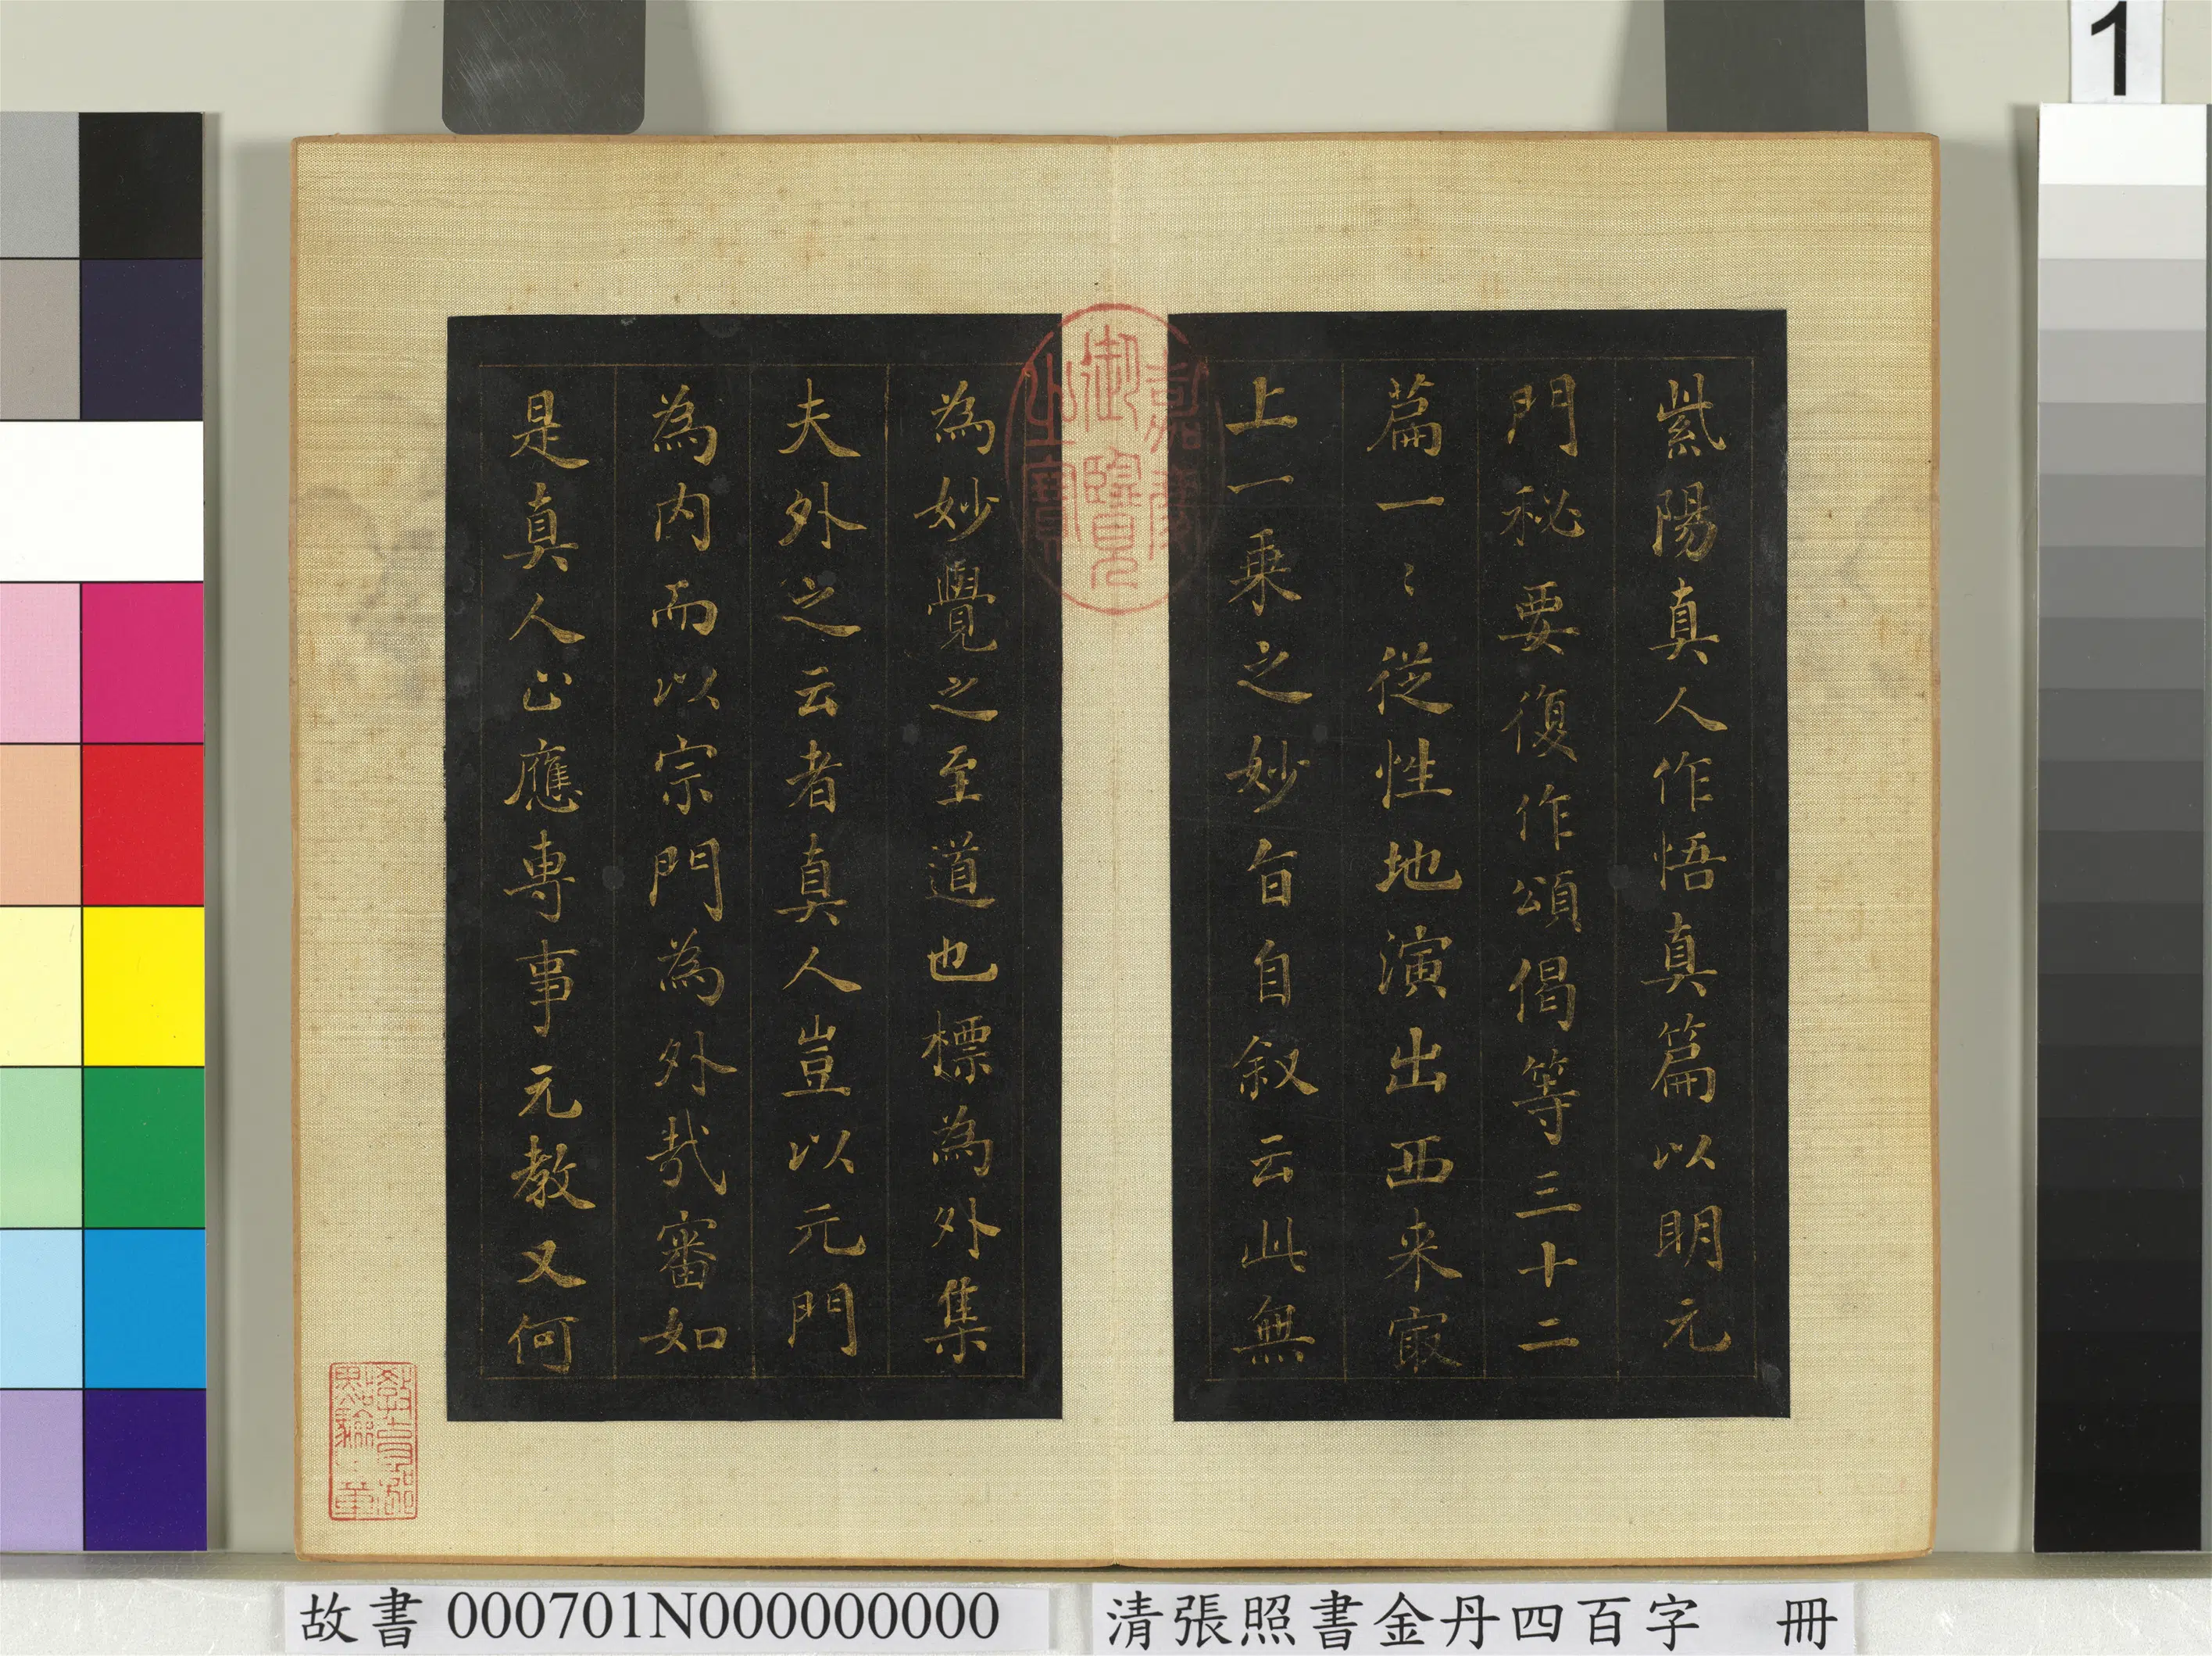 1
紫陽真人作悟真篇以明元
門秘要復作頌偈等三十二
篇一〻從性地演出西来㝡
上一乗之妙旨自叙云此無
為妙覺之至道也標為外集
夫外之云者真人豈以元門
為内而以宗門為外哉審如
是真人止應専事元教又何
嘉慶御覽之寶
教育部點驗之章
故書 000701N000000000
清張照書金丹四百字 冊